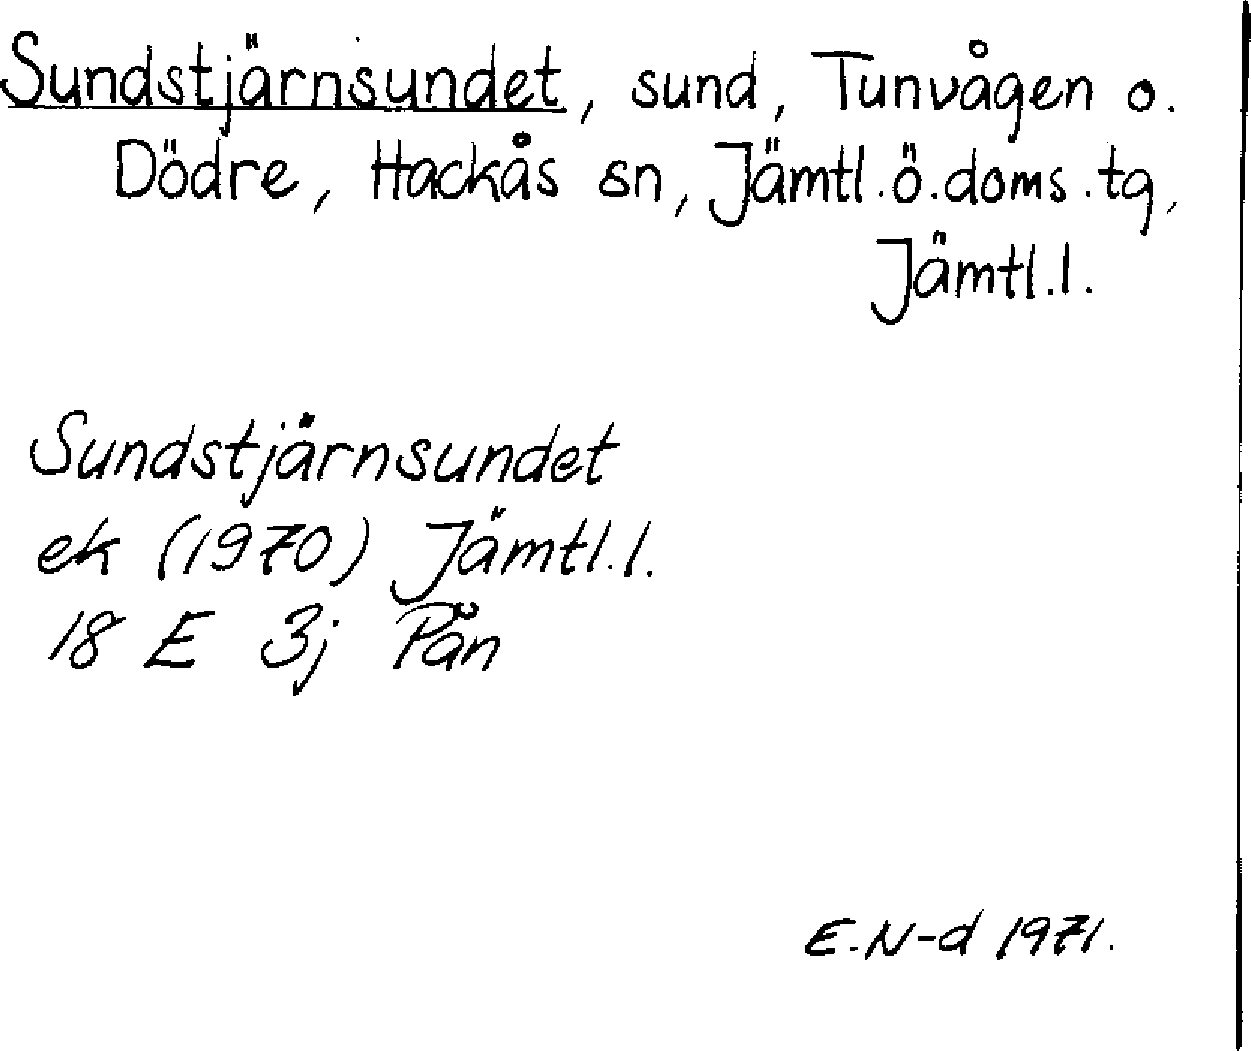 Sundstjärnsundet, sund, Tunvågen o.
Dödre, Hackås sn, Jämtl.ö.doms.tg,
Jämtl.l.
Sundstjärnsundet
ek (1970) Jämtl.l.
18 E 3j Pån
E.N-d 1971.